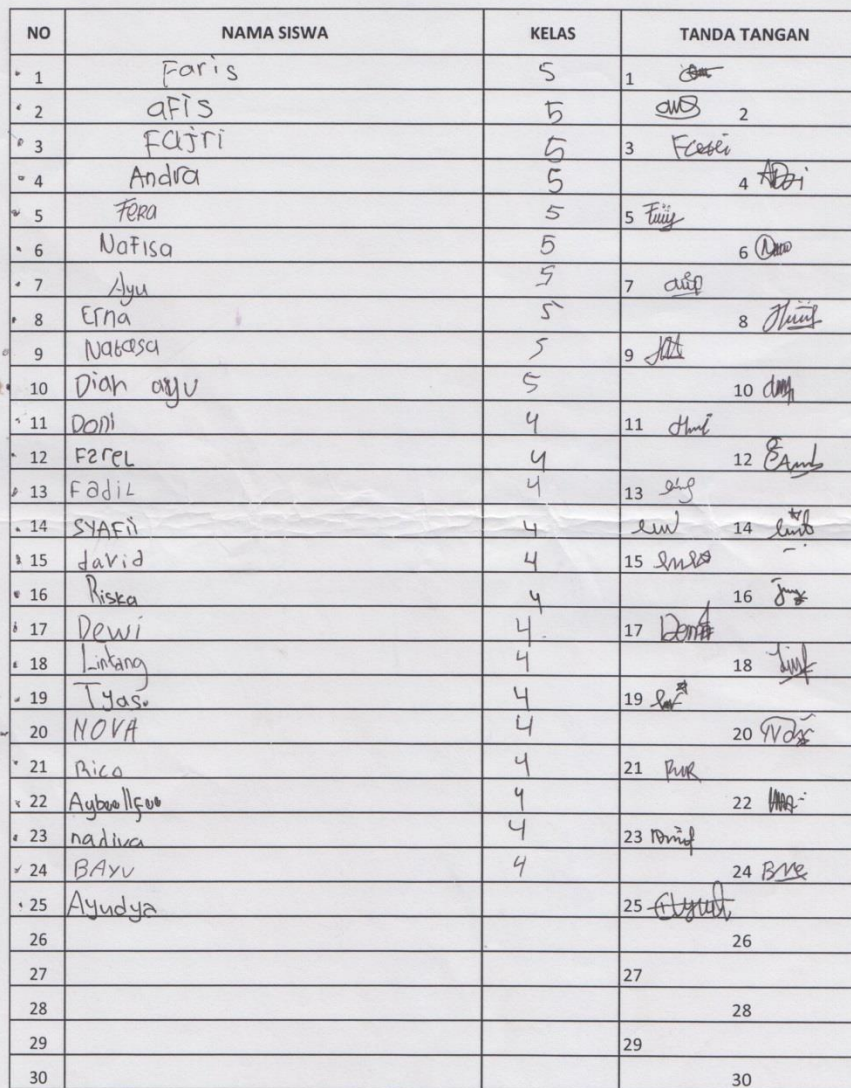 NO NAMA SISWA KELAS TANDA TANGAN
1 Faris 5 1
2 aFis 5 2
3 FAjri 5 3
4 Andra 5 4
5 Fera 5 5
6 NaFisa 5 6
7 Ayu 5 7
8 Erna 5 8
9 Natasa 5 9
10 Dian ayu 5 10
11 Doni 4 11
12 Farel 4 12
13 Fadil 4 13
14 SYAFii 4 14
15 david 4 15
16 Riska 4 16
17 Dewi 4. 17
18 Lintang 4 18
19 Tyas. 4 19
20 NOVA 4 20
21 Rico 4 21
22 4 22
23 nadiva 4 23
24 BAYU 4 24
25 Ayudya 25
26 26
27 27
28 28
29 29
30 30